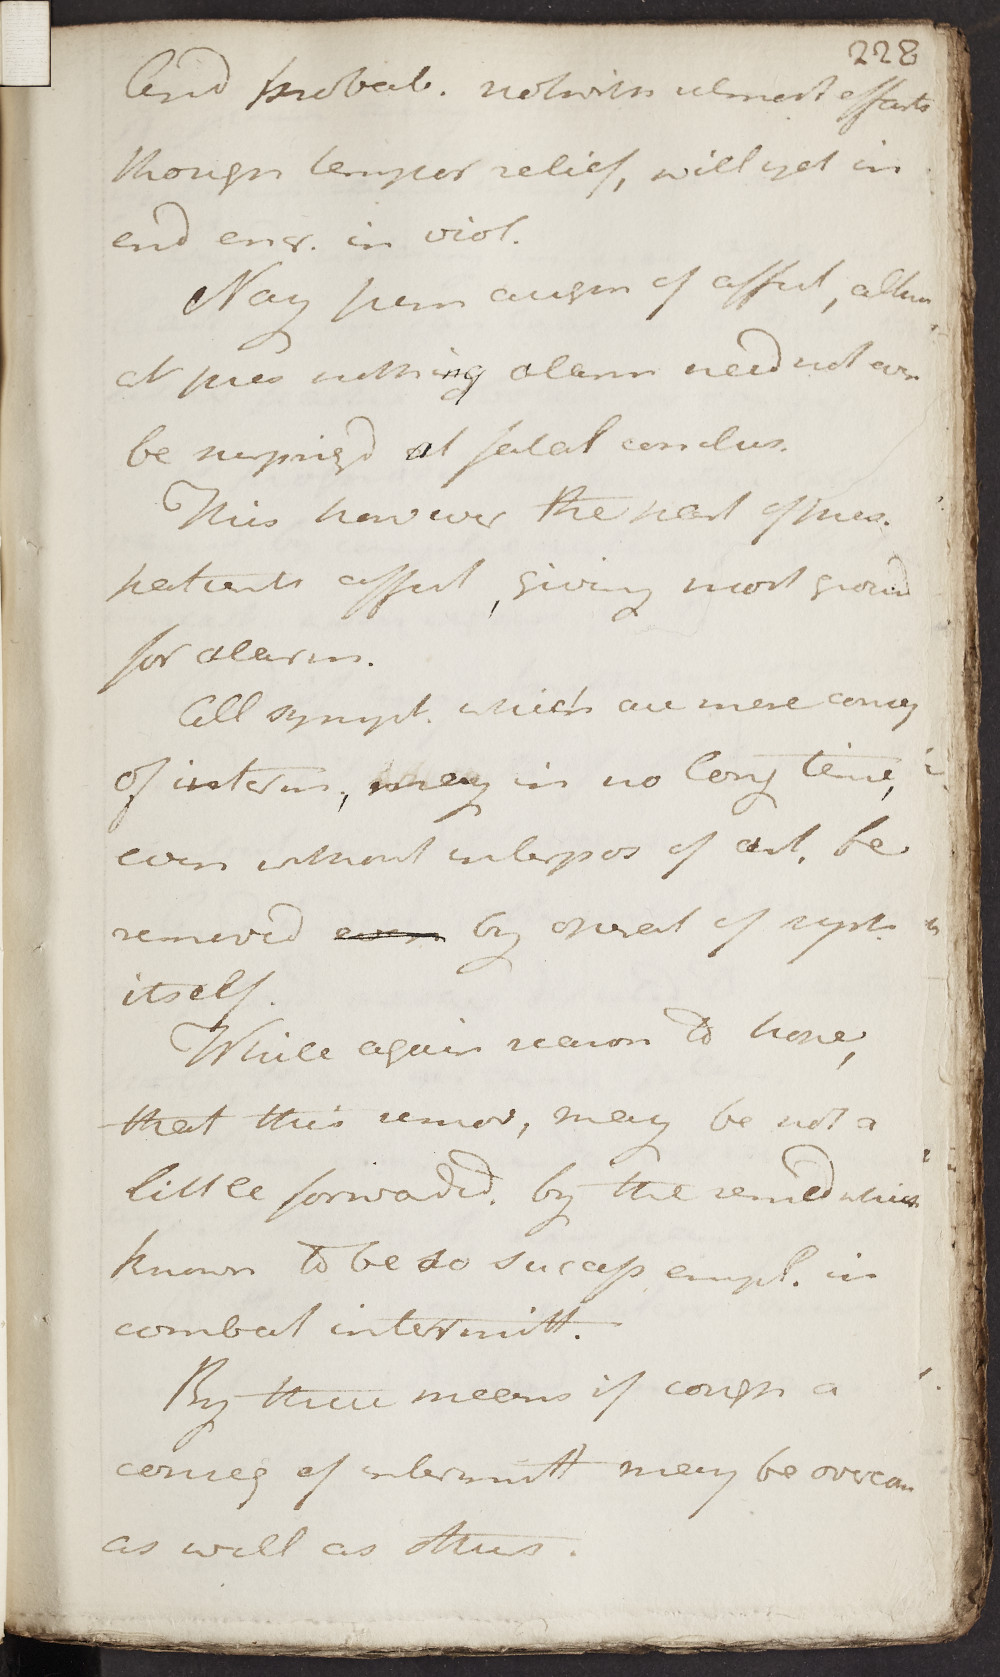 228
And probab. notwith utmost efforts
though tempor relief, will yet in
end encr. in viol.
Nay from augm of affect, altho
at pres nothing alarm need not even
be surprized at fatal conclus.
This however the part of pres.
patients affect, giving most ground
for alarm.
All sympt. which are mere conseq
of interm, may in no long time,
even without interpos of art, be
removed by operat of synt
itself.
While again reason to hope,
that this remov, may be not a
little forwaded. by the remed which
known to be so succesf empl. in
combat intermitt.
By these means if cough a
conseq of intermitt may be overcom
as well as others.